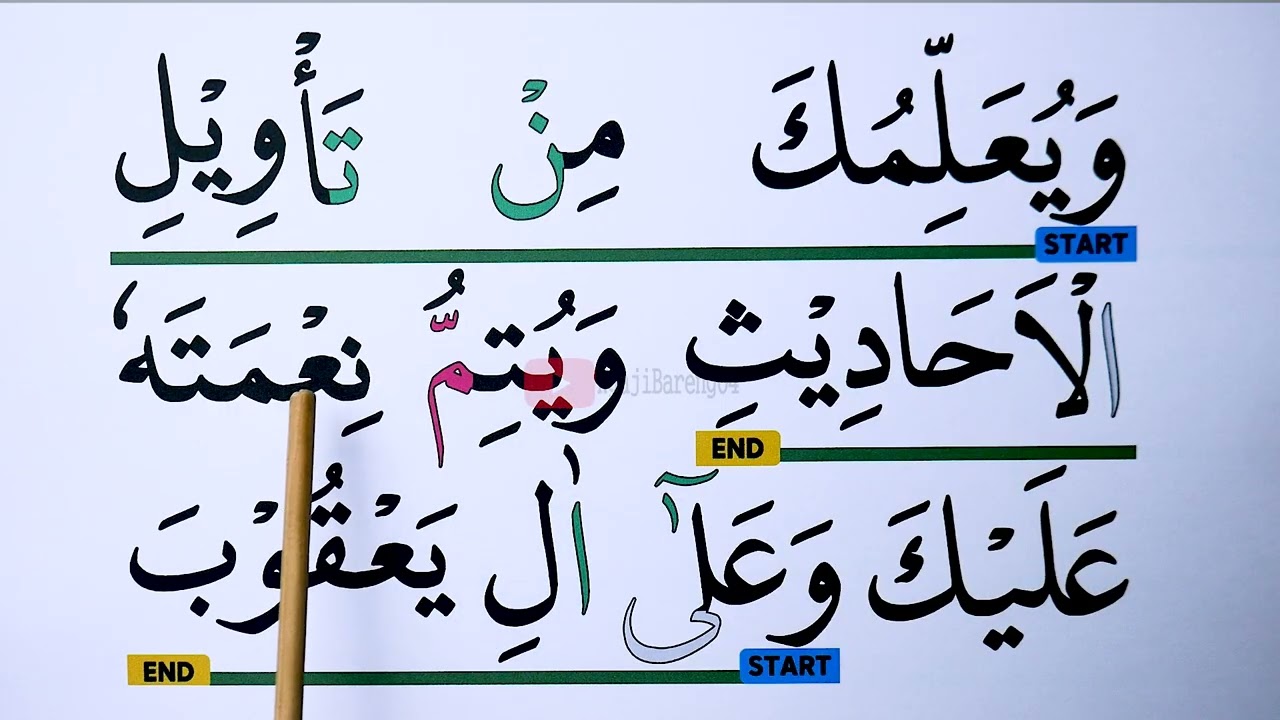 وَيُعَلِّمُكَ مِنْ تَأْوِيْلِ
START
الْاَحَادِيْثِ وَيُتِمُّ نِعْمَتَهٗ
END
عَلَيْكَ وَعَلٰٓى اٰلِ يَعْقُوْبَ
START
END